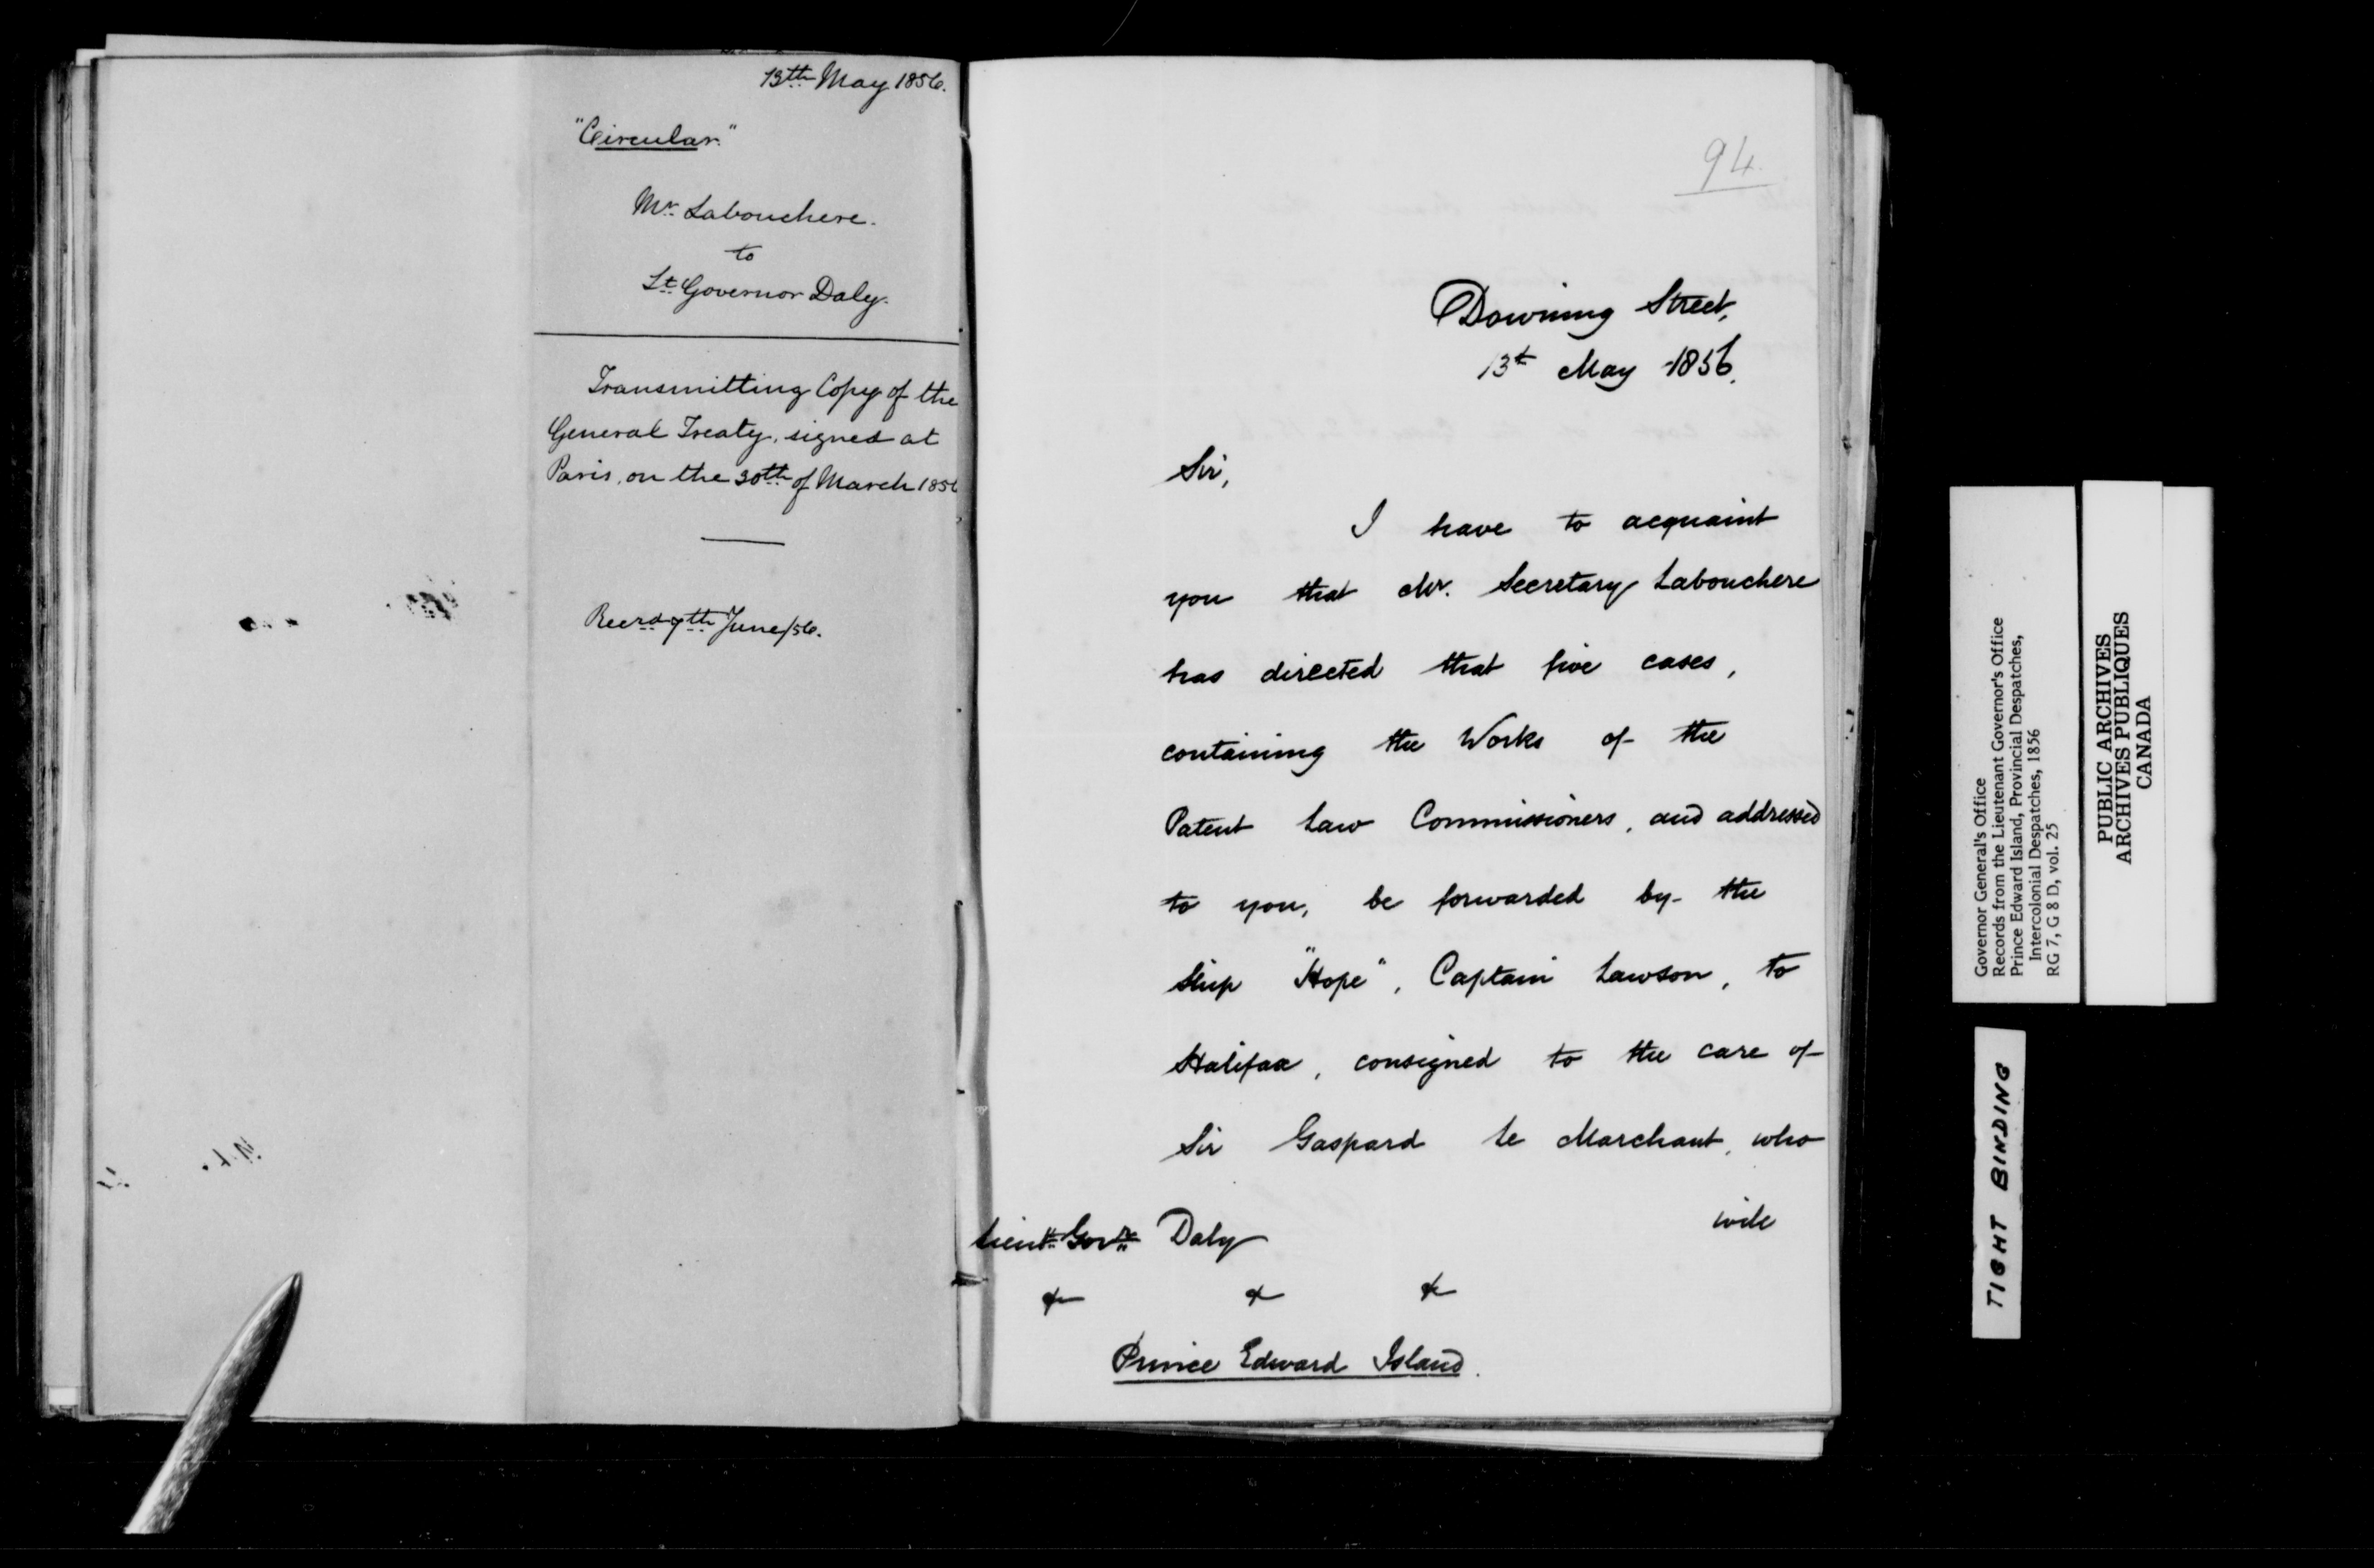 13th May 1856.
"Circular."
Mr. Labouchere.
to
Lt. Governor Daly.
Transmitting Copy of the
General Treaty, signed at
Paris, on the 30th of March 1856
Recd 7th June/56.
94.
Downing Street,
13th May 1856.
Sir,
I have to acquaint
you that Mr. Secretary Labouchere
has directed that five cases,
containing the Works of the
Patent Law Commissioners, and addressed
to you, be forwarded by the
Ship "Hope", Captain Lawson, to
Halifax, consigned to the care of
Sir Gaspard le Marchant, who
will
Lieut. Govr. Daly
& & &
Prince Edward Island.
Governor General's Office
Records from the Lieutenant Governor's Office
Prince Edward Island, Provincial Despatches,
Intercolonial Despatches, 1856
RG 7, G 8 D, vol. 25
PUBLIC ARCHIVES
ARCHIVES PUBLIQUES
CANADA
TIGHT BINDING